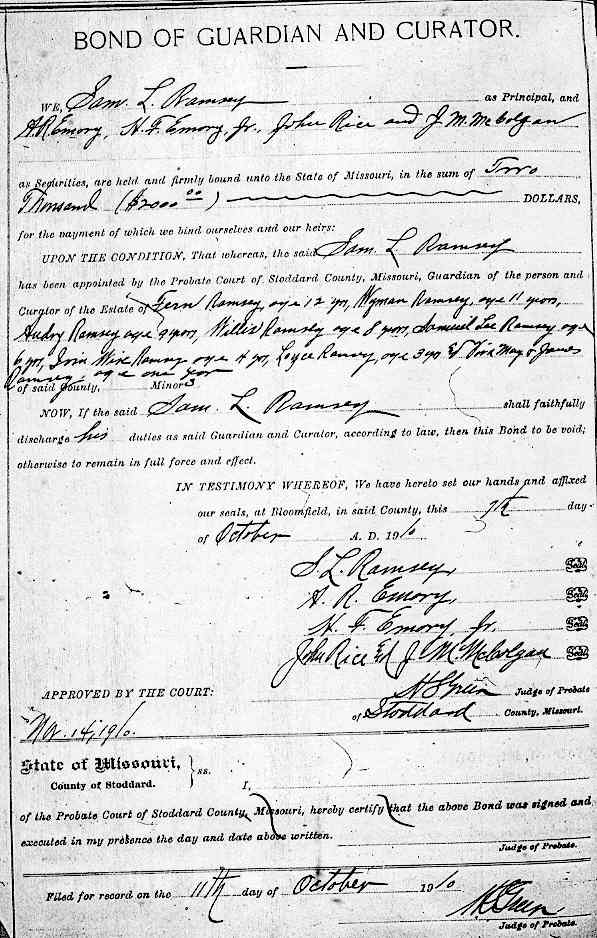 BOND OF GUARDIAN AND CURATOR.
WE, Sam. L. Ramsey as Principal, and
A.R. Emory, H. F. Emory, Jr., John Rice and J. M. McColgan
as Securities, are held and firmly bound unto the State of Missouri, in the sum of Two
Thousand ($2000 00) DOLLARS,
for the payment of which we bind ourselves and our heirs:
UPON THE CONDITION, That whereas, the said Sam. L Ramsey
has been appointed by the Probate Court of Stoddard County, Missouri, Guardian of the person and
Curator of the Estate of Fern Ramsey, age 12 yrs, Wyman Ramsey, age 11 years,
Audry Ramsey age 9 years, Willis Ramsey age 8 years, Samuel Lee Ramsey age
6 yrs, Ramsey age 4 yrs, Loyce Ramsey, age 3 yrs May & James
Ramsey, age one year
of said County, Minors
NOW, If the said Sam. L. Ramsey shall faithfully
discharge his duties as said Guardian and Curator, according to law, then this Bond to be void;
otherwise to remain in full force and effect.
IN TESTIMONY WHEREOF, We have hereto set our hands and affixed
our seals, at Bloomfield, in said County, this 7th day
of October A. D. 1910
S. L. Ramsey, Seal
A. R. Emory, Seal
H. F. Emory, Jr. Seal
John Rice & J. M. McColgan Seal
APPROVED BY THE COURT:
Judge of Probate
of Stoddard County, Missouri.
Nov. 14, 1910.
State of Missouri, ss.
County of Stoddard.
I,
of the Probate Court of Stoddard County, Missouri, hereby certify that the above Bond was signed and
executed in my presence the day and date above written.
Judge of Probate.
Filed for record on the 11th day of October 1910
Judge of Probate.